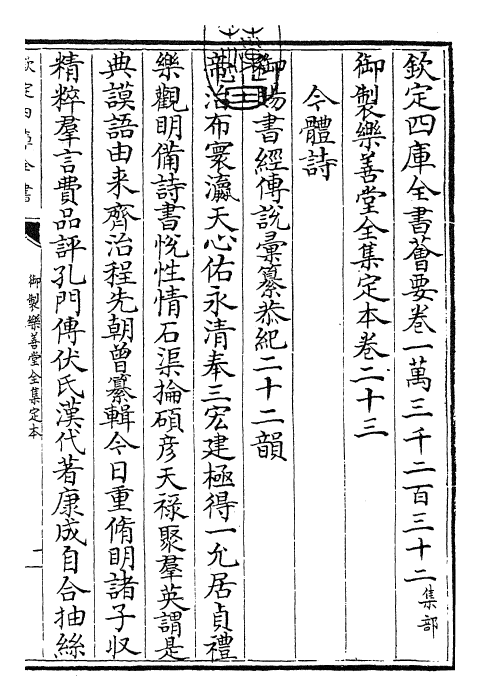 欽定四庫全書薈要卷一萬三千二百三十二集部
御製樂善堂全集定本卷二十三
今體詩
御賜書經傳說彙纂恭紀二十二韻
帝治布寰瀛天心佑永清奉三宏建極得一允居貞禮
樂觀明備詩書悅性情石渠掄碩彥天祿聚羣英謂是
典謨語由来齊治程先朝曾纂輯今日重脩明諸子収
精粹羣言費品評孔門傳伏氏漢代著康成自合抽絲
欽定四庫全書
御製樂善堂全集定本
一